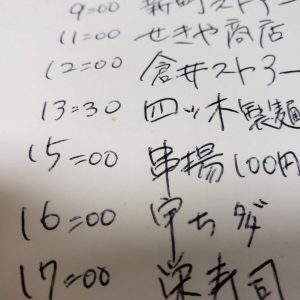 9=00 新町ストアー
11=00 せきや商店
12=00 倉井ストアー
13=30 四ッ木製麺
15=00 串揚100円
16=00 宇ち多
17=00 栄寿司